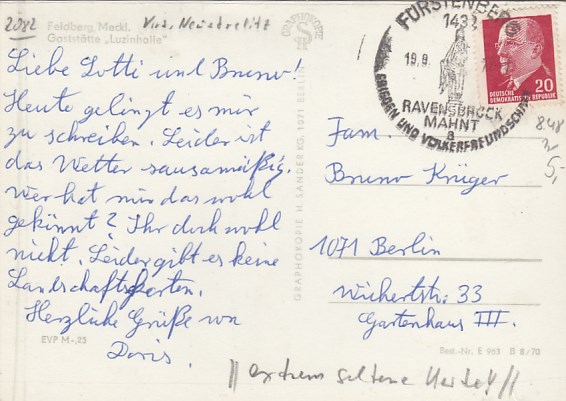 2082
Krs. Neustrelitz
Feldberg, Meckl.
Gaststätte „Luzinhalle"
Liebe Lotti und Bruno!
Heute gelingt es mir
zu schreiben. Leider ist
das Wetter sausamäßig.
Wer hat mir das wohl
gekönnt? Ihr doch wohl
nicht. Leider gibt es keine
Landschaftskarten.
Herzliche Grüße von
Doris.
EVP M -,23
GRAPHOKOPIE
GRAPHOKOPIE H. SANDER KG, 1071 BERLIN
FÜRSTENBERG
1432
19.9.
RAVENSBRÜCK
MAHNT
a
FRIEDEN UND VÖLKERFREUNDSCHAFT
20
DEUTSCHE
DEMOKRATISCHE REPUBLIK
848
5,-
Fam.
Bruno Krüger
1071 Berlin
Wichertstr. 33
Gartenhaus III.
Best.-Nr. E 963 B 8/70
|| extrem seltene Karte! ||